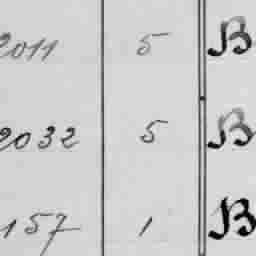 2011 5 B
2032 5 B
157 1 B